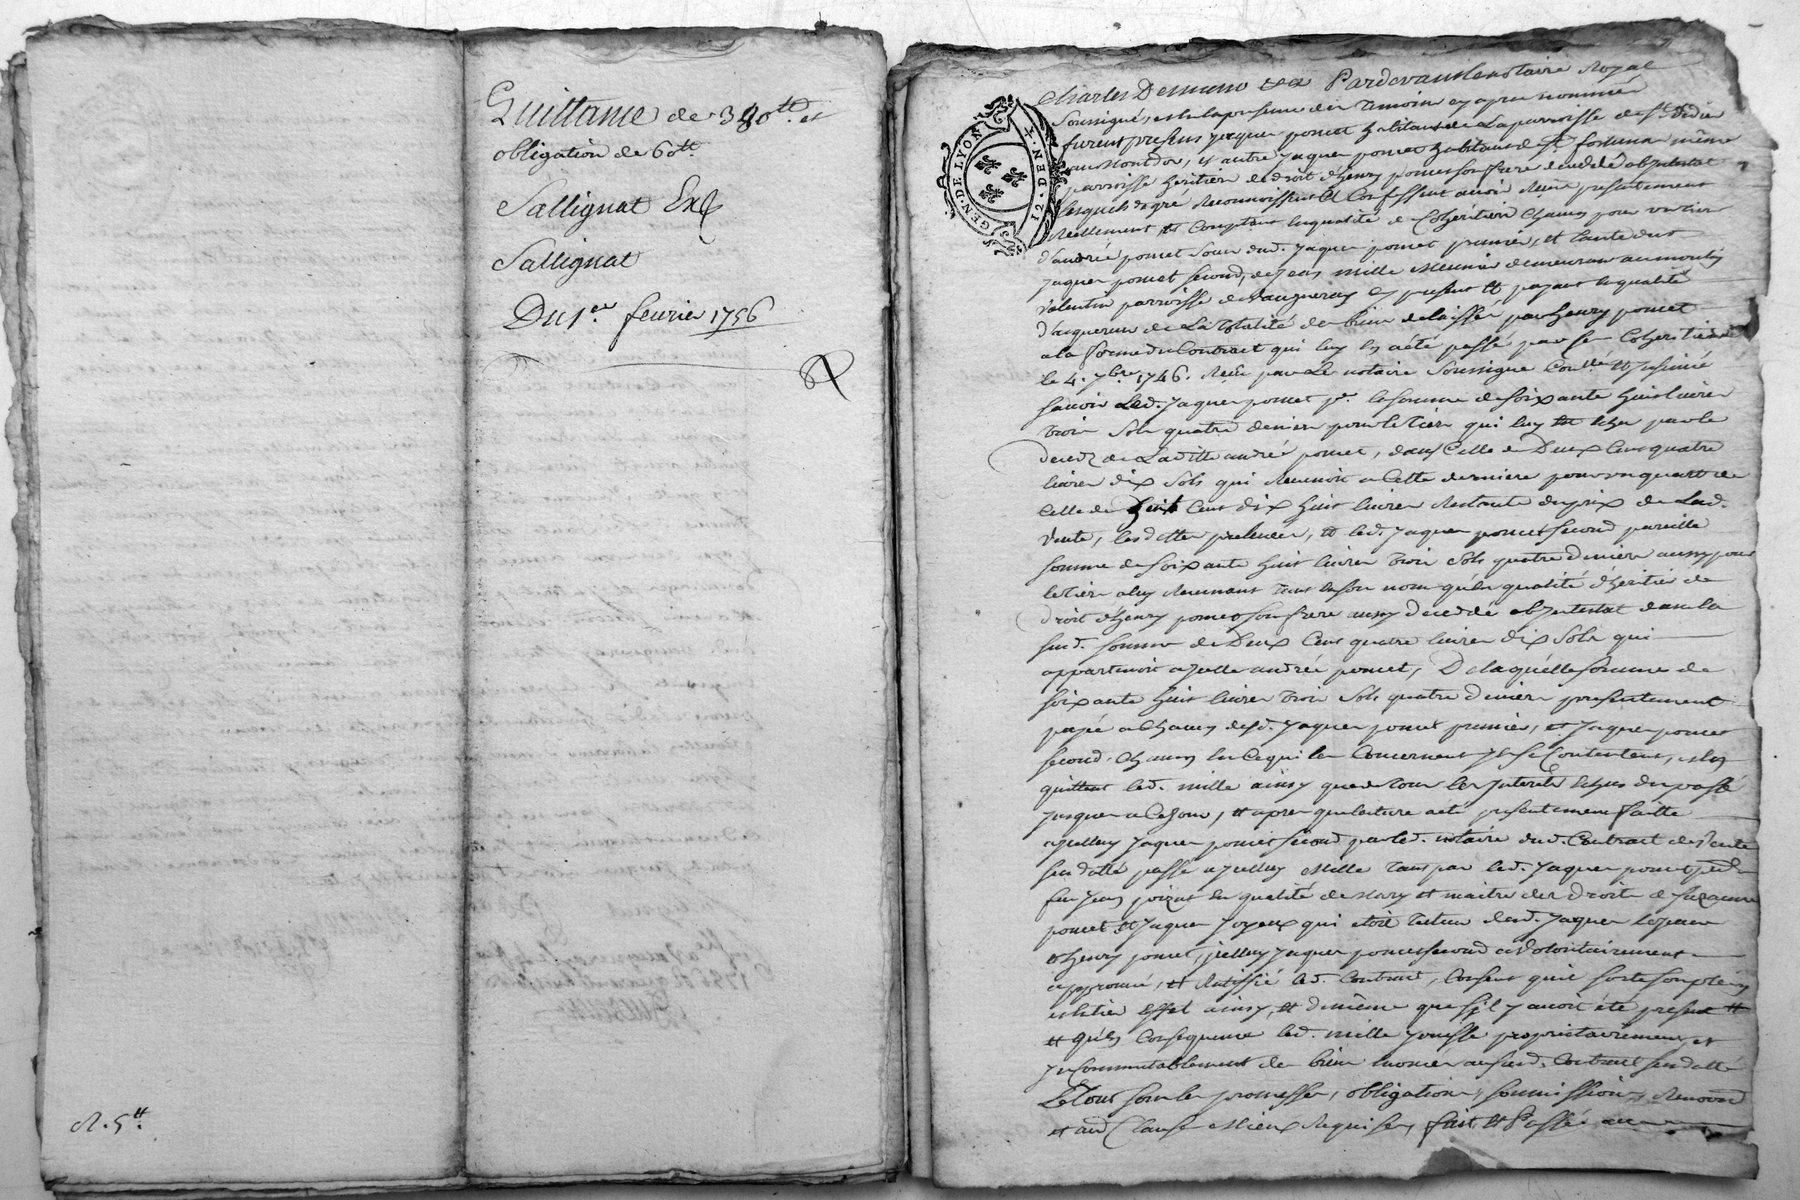 Quittance de 380tt. et
obligation de 60tt.
Sallignat Exp
Sallignat
Du 1er. fevrier 1756
R. 5tt.
GEN. DE LYON
12. DEN.
Pardevant le notaire Royal
Soussigné, et en la presence des Temoins cy apres nommés
furent presens jaques poncet habitant de La parroisse de St. Didier
au Montdor, et autre Jaques poncet habitant de St. fortuna même
parroisse heritier de droit d'henry poncet son frere decedé ab Intestat
Lesquels de gré Reconnoissent Et Confessent avoir Reçu presentement
Reellement et Comptant en qualité de Coheritiers Chacun pour un tiers
d'andrée poncet soeur dud. Jaques poncet premier, et tante dud.
Jaques poncet second, de jean mille Meunier demeurant au moulin
Valentin parroisse de Vaugneray cy present et payant en qualité
d'acquereur de La totalité des biens delaissés par henry poncet
a la forme du Contract qui luy en a été passé par ses Coheritiers
le 4. 7bre. 1746. Reçu par Le notaire Soussigné Con.llé et Insinué
Savoir aud. Jaques poncet pr. la somme de soixante huit livres
trois Sols quatre deniers pour le tiers qui luy est echu par le
decedz de Laditte andrée poncet, dans Celle de Deux Cent quatre
livres dix Sols qui Revenoit a Cette derniere pour un quart de
Celle de huit Cent dix huit livres Restante du prix de Lad.
Vente, et led. Jaques poncet second pareille
somme de soixante huit livres trois Sols quatre deniers aussy pour
le tiers a luy Revenant tant en son nom qu'en qualité d'heritier de
droit d'henry poncet son frere aussy decedé ab Intestat dans la
sud. somme de Deux Cent quatre livres dix Sols qui
appartenoit a jcelle andrée poncet, De laquelle somme de
soixante huit livres trois Sols quatre deniers presentement
payée a Chacun desd. Jaques poncet premier, et Jaques poncet
second, Chacun en Ce qui les Concernent jls se Contentent, et en
quittent led. mille ainsy que de tous les Interets echus du passé
jusques a Ce jour, et apres que lecture a eté presentement faitte
a jcelluy Jaques poncet second par led. notaire dud. Contract de Vente
sus datté passé a jcelluy Mille tant par led. Jaques poncet
feu Jean en qualité de Mary et maitre des Droits de Suzanne
poncet et Jaques Joyeux qui etoit tuteur desd. Jaques
et henry poncet, jcelluy Jaques poncet second a Volontairement
approuvé, et Ratiffié led. Contract, Consent qu'il sorte son plein
et entier Effet ainsy, et de même que s'il y avoit été present
et qu'en Consequence led. mille jouisse proprietairement, et
Incommutablement des biens enoncés au susd. Contract sus datté
Le tout sous les promesses, obligations, soumissions, Renonc.
et aud. Clauses Mieux Requises, fait et Passé au